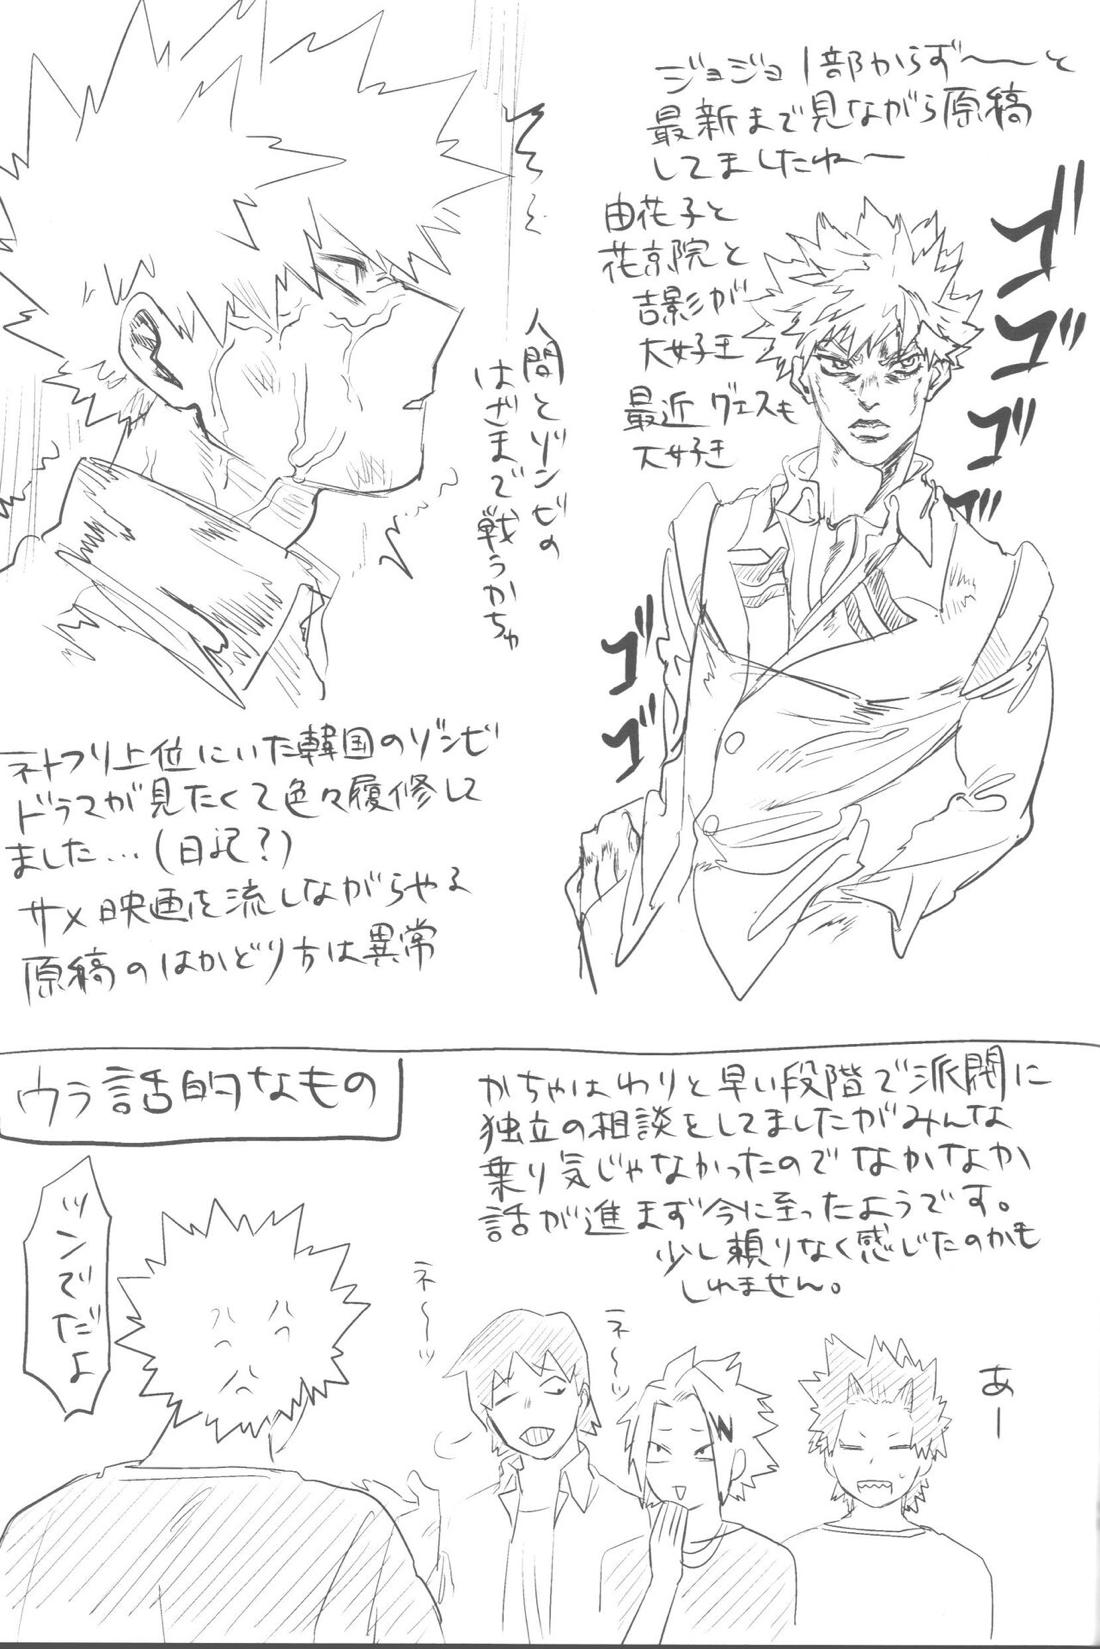 ジョジョ1部からず〜〜〜と
最新まで見ながら原稿
してましたねー
由花子と
花京院と
吉影が
大好き
最近グェスも
大好き
ゴゴゴゴ
ゴゴ
人間とゾンビの
はざまで戦うかちゃ
ネトフリ上位にいた韓国のゾンビ
ドラマが見たくて色々履修して
ました…(日記?)
サメ映画を流しながらやる
原稿のはかどり方は異常
ウラ話的なもの
かちゃはわりと早い段階で派閥に
独立の相談をしてましたがみんな
乗り気じゃなかったのでなかなか
話が進まず今に至ったようです。
少し頼りなく感じたのかも
しれません。
ツンでだよ
ネ〜〜
ネ〜〜
あー